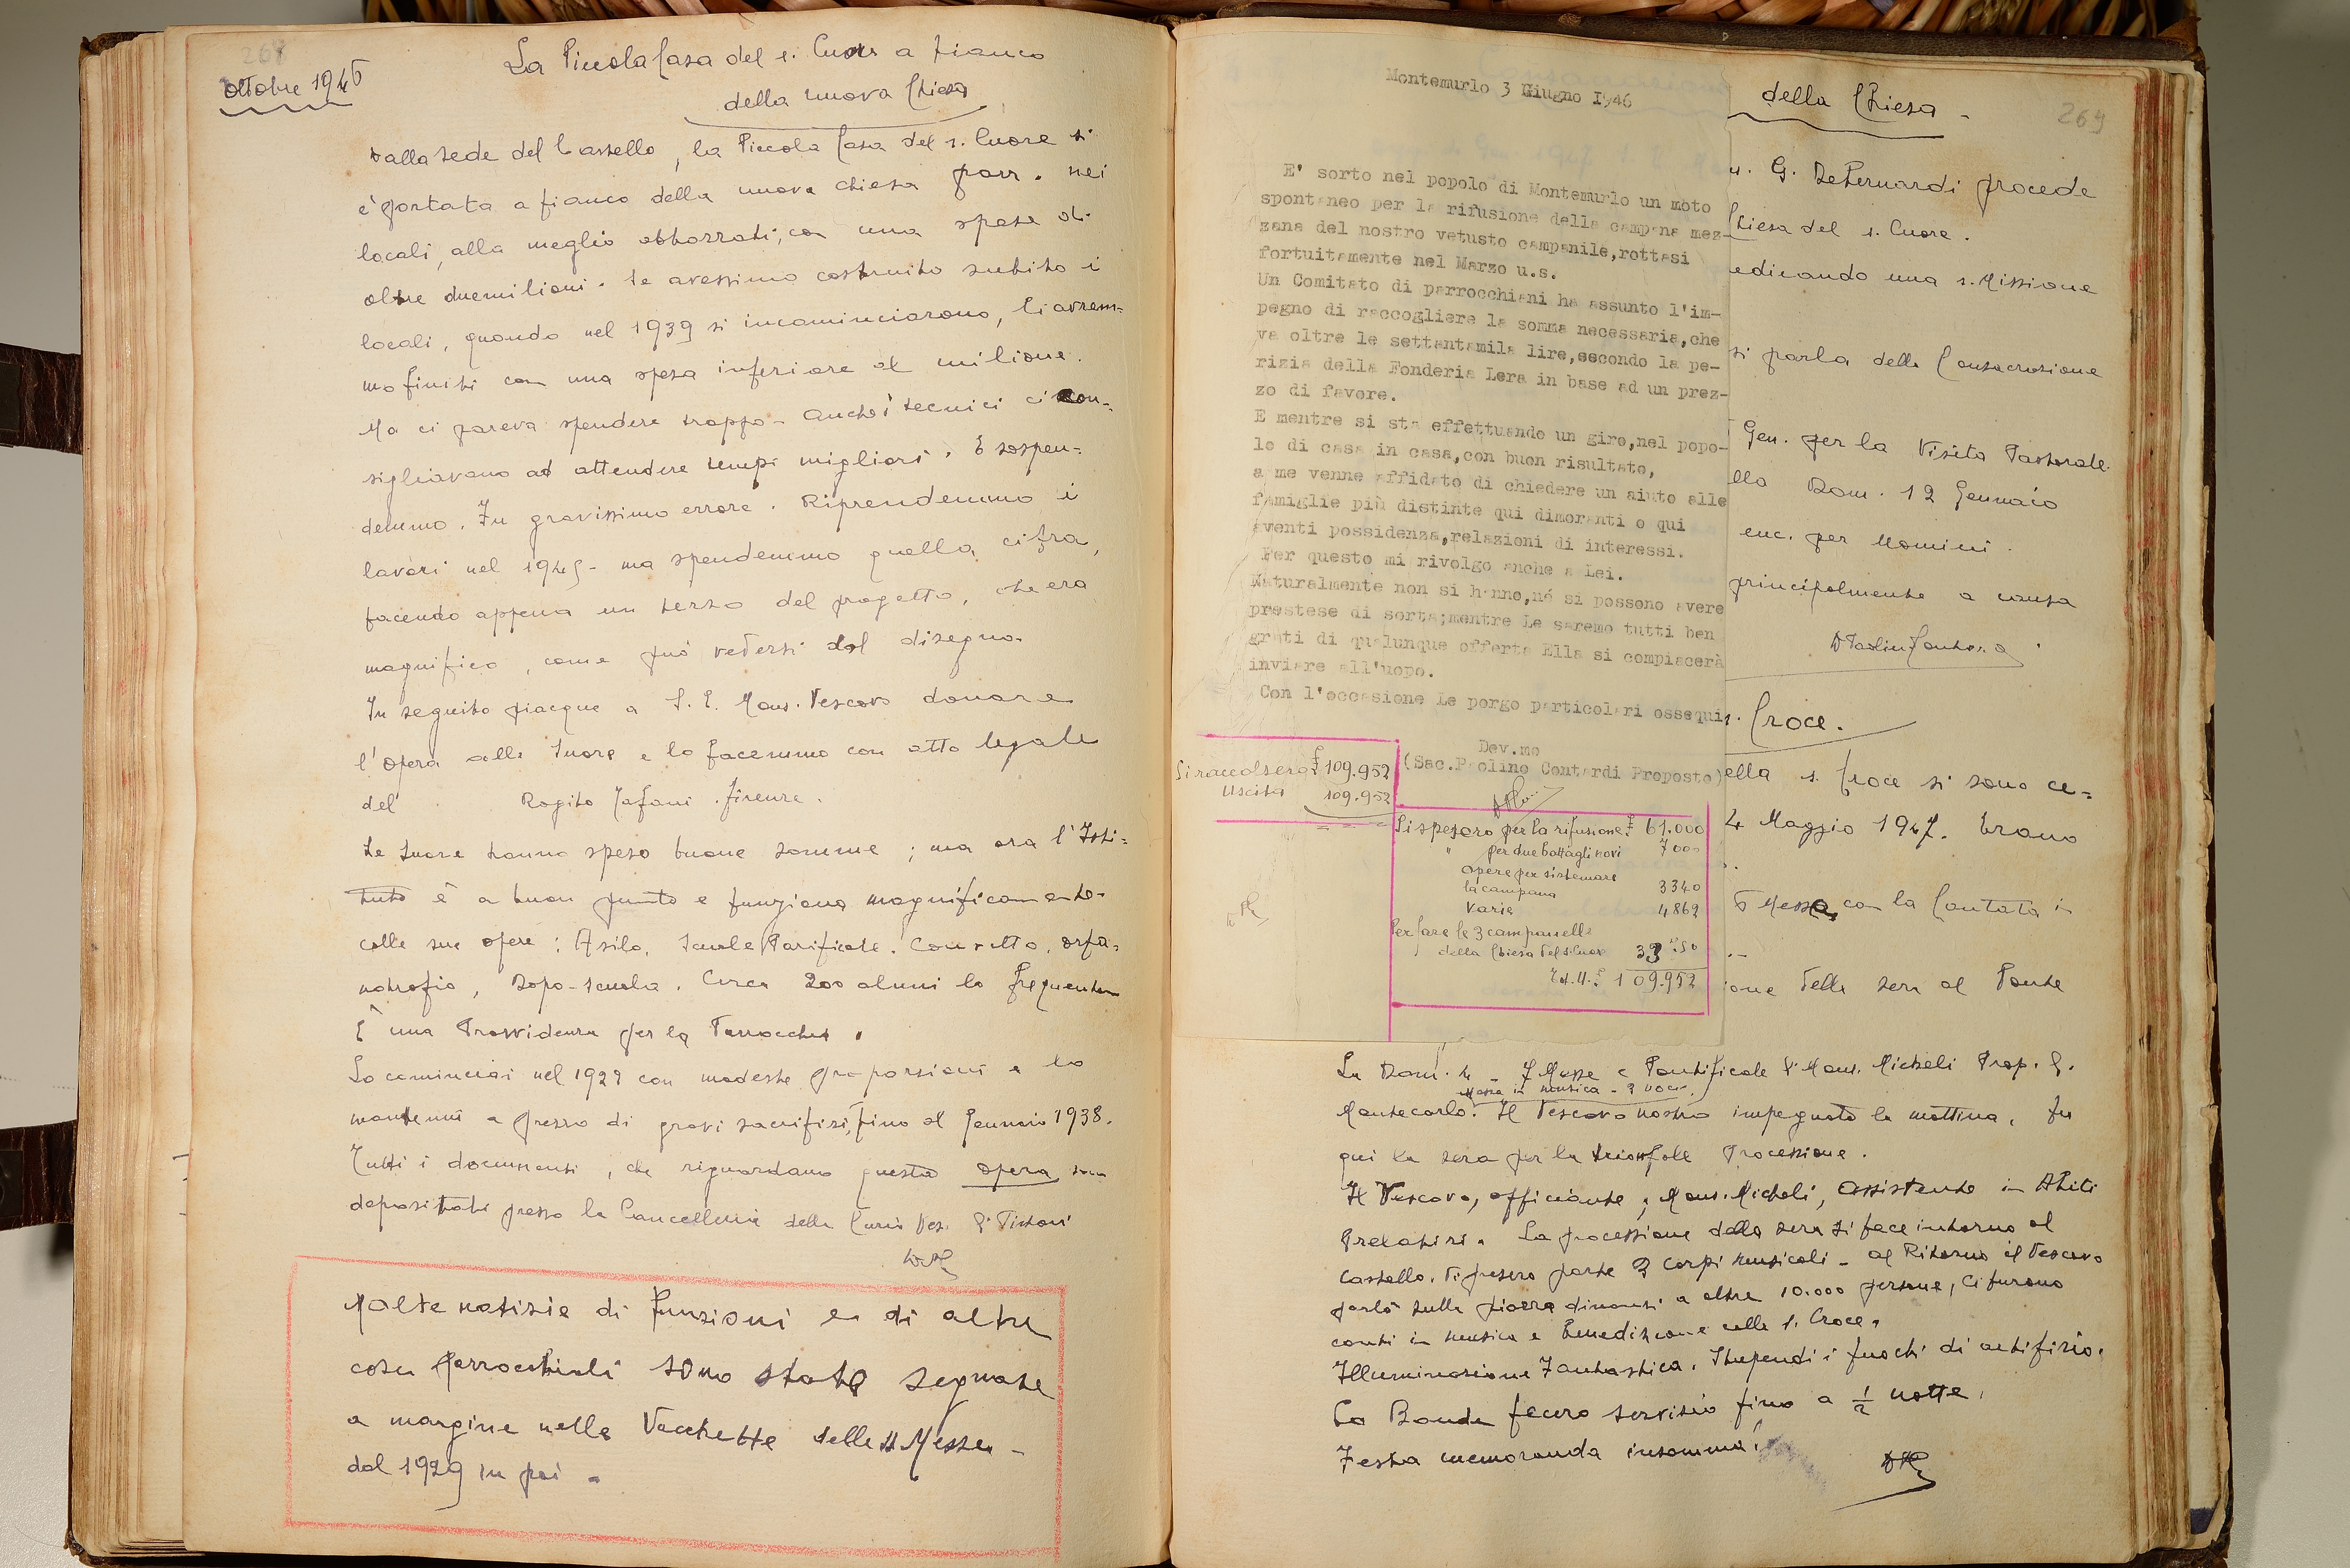 268
Ottobre 1946
La Piccola Casa del s. Cuore a fianco
della nuova Chiesa
Dalla sede del Castello, la Piccola Casa del s. Cuore si
è portata a fianco della nuova chiesa parr. nei
locali, alla meglio abbozzati, con una spesa di
oltre duemilioni. Se avessimo costruito subito i
locali, quando nel 1939 si incominciarono, li avrem=
mo finiti con una spesa inferiore al milione.
Ma ci pareva spendere troppo - Anche i tecnici ci con=
sigliavano ad attendere tempi migliori. E sospen=
demmo. Fu gravissimo errore. Riprendemmo i
lavori nel 1945 - ma spendemmo quella cifra,
facendo appena un terzo del progetto, che era
magnifico, come può vedersi dal disegno.
In seguito piacque a S. E. Mons. Vescovo donare
l'Opera alle Suore e lo facemmo con atto legale
del Rogito Firenze.
Le Suore hanno speso buone somme; ma ora l'Isti=
tuto è a buon punto e funziona magnificamente
colle sue opere: Asilo, Scuole Parificate. Convitto, orfa=
notrofio, Dopo-scuola. Circa 200 alunni lo frequentano
È una Provvidenza per la Parrocchia.
Lo cominciai nel 1929 con modeste proporzioni e lo
mantenni a prezzo di gravi sacrifizi, fino al Gennaio 1938.
Tutti i documenti, che riguardano questa opera sono
depositati presso la Cancelleria della Curia Ves. di Pistoia
Molte notizie di funzioni e di altre
cose parrocchiali sono state segnate
a margine nelle Vacchette delle SS Messe -
dal 1929 in poi.
Montemurlo 3 Giugno I946
E' sorto nel popolo di Montemurlo un moto
spontaneo per la rifusione della campana mez-
zana del nostro vetusto campanile,rottasi
fortuitamente nel Marzo u.s.
Un Comitato di parrocchiani ha assunto l'im-
pegno di raccogliere la somma necessaria,che
va oltre le settantamila lire,secondo la pe-
rizia della Fonderia Lera in base ad un prez-
zo di favore.
E mentre si sta effettuando un giro,nel popo-
lo di casa in casa,con buon risultato,
a me venne affidato di chiedere un aiuto alle
famiglie più distinte qui dimoranti o qui
aventi possidenza,relazioni di interessi.
Per questo mi rivolgo anche a Lei.
Naturalmente non si hanno,né si possono avere
pretese di sorta;mentre Le saremo tutti ben
grati di qualunque offerta Ella si compiacerà
inviare all'uopo.
Con l'occasione Le porgo particolari ossequi
Dev.mo
(Sac.Paolino Contardi Proposto)
Si raccolsero £ 109.952
Uscita 109.952
Si spesero per la rifusione £ 61.000
" per due battagli novi 7000
opere per sistemare
la campana 3340
Varie 4862
Per fare le 3 campanelle
della Chiesa del s. Cuore
Tot. U. £ 109.952
della Chiesa -
269
G. DeBernardi procede
Chiesa del s. Cuore.
edicando una s. Missione
si parla della Consacrazione
Gen. per la Visita Pastorale
Dom. 12 Gennaio
per Uomini.
principalmente a causa
D Paolino Contardi
s. Croce.
ella s. Croce si sono ce=
4 Maggio 1947. Erano
Messa con la Cantata in
ione della sera al Ponte
La Dom. 4 - 7 Messe e Pontificale di Mons. Micheli Prop. di
Messa in musica - 3 voci
Montecarlo. Il Vescovo nostro impegnato la mattina, fu
qui la sera per la trionfale Processione.
Il Vescovo, officiante, Mons. Micheli, assistente in Abiti
Prelatizi. La processione della sera si fece intorno al
Castello. Vi presero parte 3 corpi musicali - al Ritorno il Vescovo
parlò sulla piazza dinanzi a oltre 10.000 persone, Ci furono
canti in musica e Benedizione colla s. Croce.
Illuminazione Fantastica. Stupendi i fuochi di artifizio.
La Banda fecero servizio fino a ½ notte.
Festa memoranda insomma!